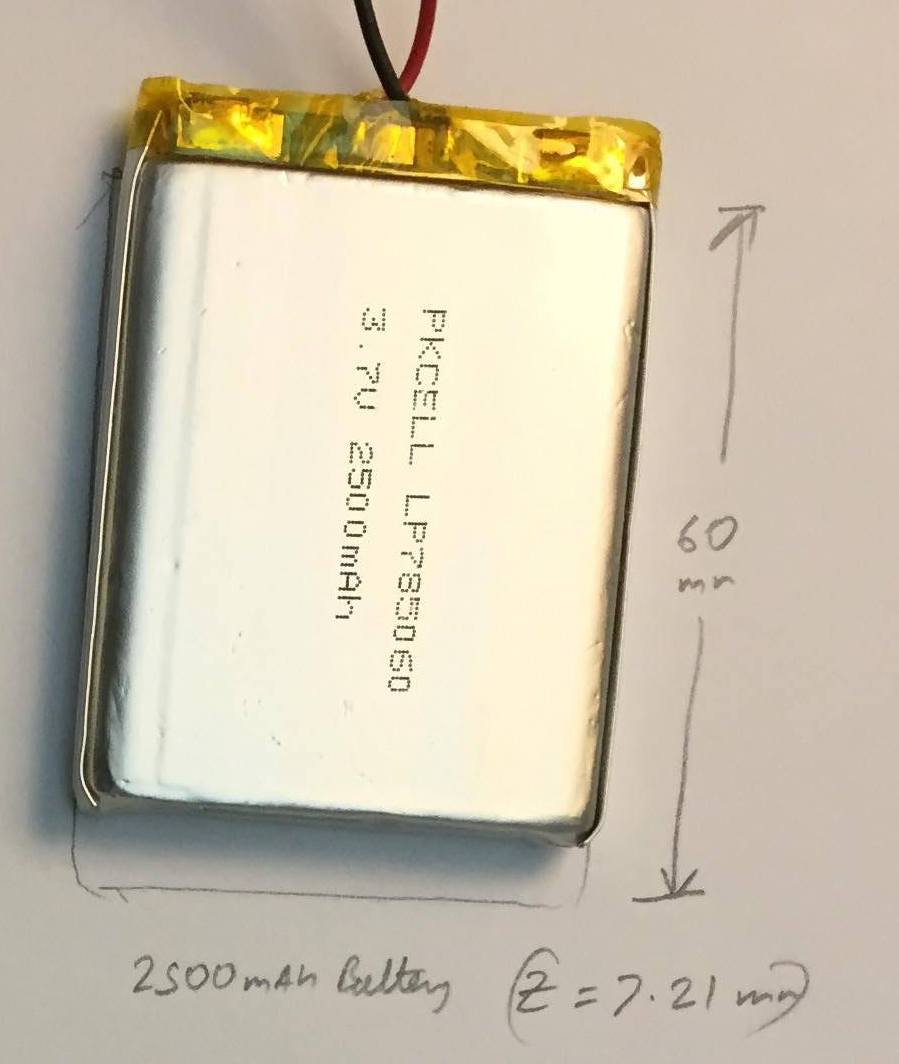 PKCELL LP785060
3.7V 2500mAh
60
mm
2500mAh Battery (Z = 7.21 mm)